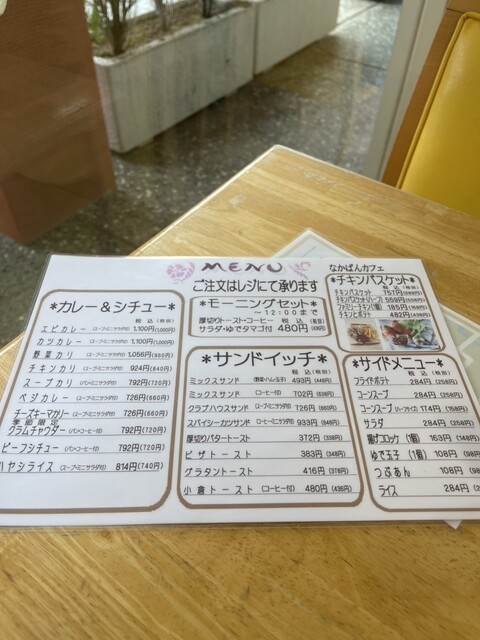 MENU
ご注文はレジにて承ります
なかぱんカフェ
＊カレー＆シチュー＊
税 込 (税別)
エビカレー (スープ・ミニサラダ付) 1,100円(1,000円)
カツカレー (スープ・ミニサラダ付) 1,100円(1,000円)
野菜カリー (スープ・ミニサラダ付) 1,056円(960円)
チキンカリー (スープ・ミニサラダ付) 924円(840円)
スープカリー (パン・ミニサラダ付) 792円(720円)
ベジカレー (スープ・ミニサラダ付) 726円(660円)
チーズキーマカリー (スープ・ミニサラダ付) 726円(660円)
季節限定
クラムチャウダー (パン・コーヒー付) 792円(720円)
ビーフシチュー (パン・コーヒー付) 792円(720円)
ハヤシライス (スープ・ミニサラダ付) 814円(740円)
＊モーニングセット＊
～12:00まで
厚切りトースト・コーヒー 税 込 (税別)
サラダ・ゆでタマゴ付 480円
＊サンドイッチ＊
税 込 (税別)
ミックスサンド (野菜・ハム・玉子) 493円(448円)
ミックスサンド (コーヒー付) 702円
クラブハウスサンド (スープ・ミニサラダ付) 726円(660円)
スパイシーカツサンド (スープ・ミニサラダ付) 933円(848円)
厚切りバタートースト 372円(338円)
ピザトースト 383円(348円)
グラタントースト 416円(378円)
小倉トースト (コーヒー付) 480円(436円)
＊チキンバスケット＊
税 込 (税別)
チキンバスケット 757円
チキンバスケット(ハーフ) 559円
ファミリーチキン(1個) 185円
チキンとポテト 482円
＊サイドメニュー＊
税 込 (税別)
フライドポテト 284円(258円)
コーンスープ 284円(258円)
コーンスープ (ハーフサイズ) 174円(158円)
サラダ 284円(258円)
揚げコロッケ (1個) 163円(148円)
ゆで玉子 (1個) 108円(98円
つぶあん 108円(98
ライス 284円(2